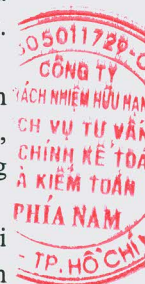 305011729-C
CÔNG TY
TRÁCH NHIỆM HỮU HẠN
CH VỤ TƯ VẤN
CHÍNH KẾ TOÁ
À KIỂM TOÁN
PHÍA NAM
- TP. HỒ CHÍ